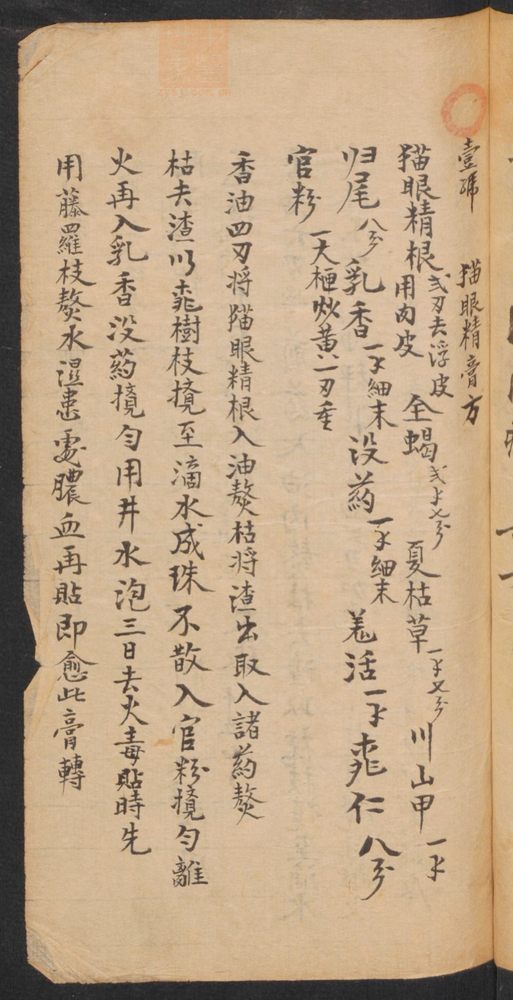 壹號 猫眼精膏方
猫眼精根 弍刄去浮皮用内皮 全蝎 弍 夏枯草 川山甲
归尾 八分 乳香 細末 没药 細末 羗活 桃仁 八分
官粉 一大 炒黄二刄重
香油四刄将猫眼精根入油熬枯将渣出取入諸药熬
枯去渣以桃樹枝撓至滴水成珠不散入官粉撓匀離
火再入乳香没药撓匀用井水泡三日去火毒貼時先
用藤羅枝熬水濕患處膿血再貼即愈此膏轉